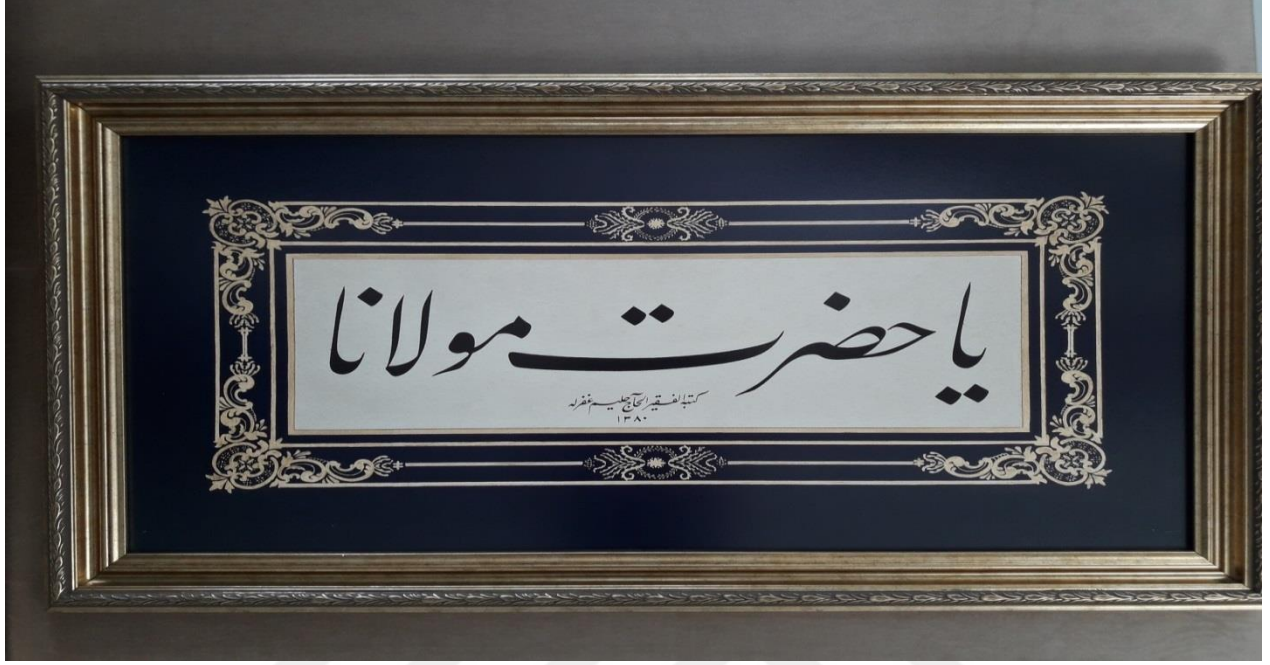 يا حضرت مولانا
كتبه الفقير الحاج حليم غفرله
١٣٨٠